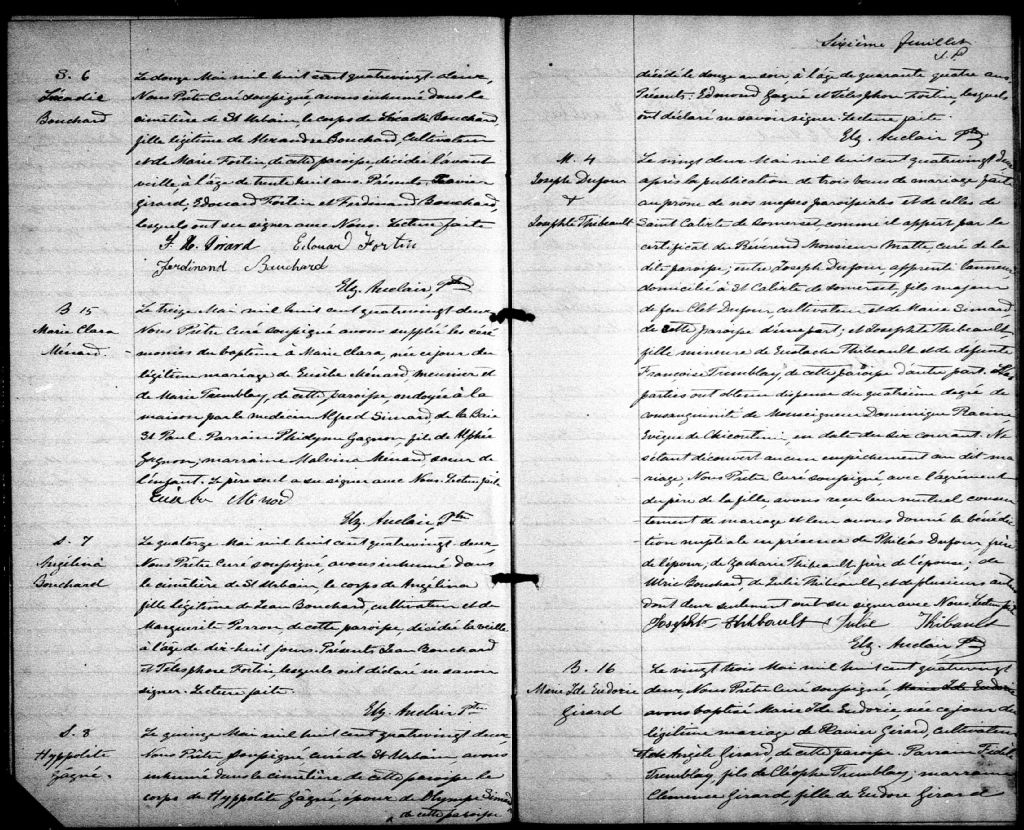 S. 6
Léocadie
Bouchard
Le douze Mai mil huit cent quatrevingt-deux,
Nous Prêtre Curé soussigné, avons inhumé dans le
cimetière de St Urbain, le corps de Léocadie Bouchard,
fille légitime de Alexandre Bouchard, Cultivateur
et de Marie Fortin, de cette paroisse, décédée l'avant
veille, à l'âge de trente huit ans. Présents: Xavier
Girard, Edouard Fortin et Ferdinand Bouchard,
lesquels ont su signer avec Nous. Lecture faite
F. X. Girard Edouard Fortin
Ferdinand Bouchard
Elz. Auclair, Ptre
B 15
Marie Clara
Ménard.
Le treize Mai mil huit cent quatrevingt deux
Nous Prêtre Curé soussigné avons suppléé les céré-
monies du baptême à Marie Clara, née ce jour du
légitime mariage de Eusèbe Ménard, meunier et
de Marie Tremblay, de cette paroisse, ondoyée à la
maison par le médecin Alfred Simard, de la Baie
St Paul. Parrain Phidyme Gagnon, fils de Alphée
Gagnon; marraine Malvina Ménard, soeur de
l'enfant. Le père seul a su signer avec Nous. Lecture faite
Elz. Auclair Ptre
S. 7
Angélina
Bouchard
Le quatorze Mai mil huit cent quatrevingt-deux,
Nous Prêtre Curé soussigné, avons inhumé dans
le cimetière de St Urbain, le corps de Angélina
fille légitime de Jean Bouchard, cultivateur et de
Marguerite Perron, de cette paroisse, décédée la veille
à l'âge de dix-huit jours. Présents: Jean Bouchard
et Télesphore Fortin, lesquels ont déclaré ne savoir
signer. Lecture faite.
Elz. Auclair Ptre
S. 8
Hyppolite
Gagné.
Le quinze Mai mil huit cent quatrevingt deux
Nous Prêtre soussigné, curé de St Urbain, avons
inhumé dans le cimetière de cette paroisse le
corps de Hyppolite Gagné époux de Olympe Simard
de cette paroisse
Sixième feuillet
décédé le douze au soir, à l'âge de quarante quatre ans
Présents: Edmond Gagné et Télesphore Fortin, lesquels
ont déclaré ne savoir signer. Lecture faite.
Elz. Auclair Ptre
M. 4
Joseph Dufour
+
Josephte Thibault
Le vingt deux Mai mil huit cent quatrevingt deux
après la publication de trois bans de mariage faite
au prône de nos messes paroissiales et de celles de
Saint Calixte de Somerset, comme il appert par le
certificat du Révérend Monsieur Matte, curé de la
dite paroisse; entre Joseph Dufour, apprenti tanneur,
domicilié à St Calixte de Somerset, fils majeur
de feu Clet Dufour, cultivateur et de Marie Simard
de cette paroisse d'une part; et Josephte Thibault,
fille mineure de Eustache Thibault et de défunte
Françoise Tremblay, de cette paroisse d'autre part. Les
parties ont obtenu dispense du quatrième degré de
consanguinité de Monseigneur Dominique Racine
Evêque de Chicoutimi, en date du six courant. Ne
s'étant découvert aucun empêchement au dit ma-
riage, Nous Prêtre Curé soussigné, avec l'agrément
du père de la fille, avons reçu leur mutuel consen-
tement de mariage et leur avons donné la bénédic-
tion nuptiale en présence de Philéas Dufour, frère
de l'époux; de Zacharie Thibault, frère de l'épouse; de
Ulric Bouchard, de Julie Thibault, et de plusieurs autres
dont deux seulement ont su signer avec Nous. Lecture faite
Joseph Thibault Julie Thibault
Elz. Auclair Ptre
B. 16
Marie Ida Eudoxie
Girard
Le vingt trois Mai mil huit cent quatrevingt
deux, Nous Prêtre Curé soussigné, Marie Ida Eudoxie
avons baptisé Marie Ida Eudoxie, née ce jour du
légitime mariage de Xavier Girard, Cultivateur
et de Angèle Girard, de cette paroisse. Parrain Fidèle
Tremblay, fils de Cléophe Tremblay; marraine
Clémence Girard, fille de Eudore Girard